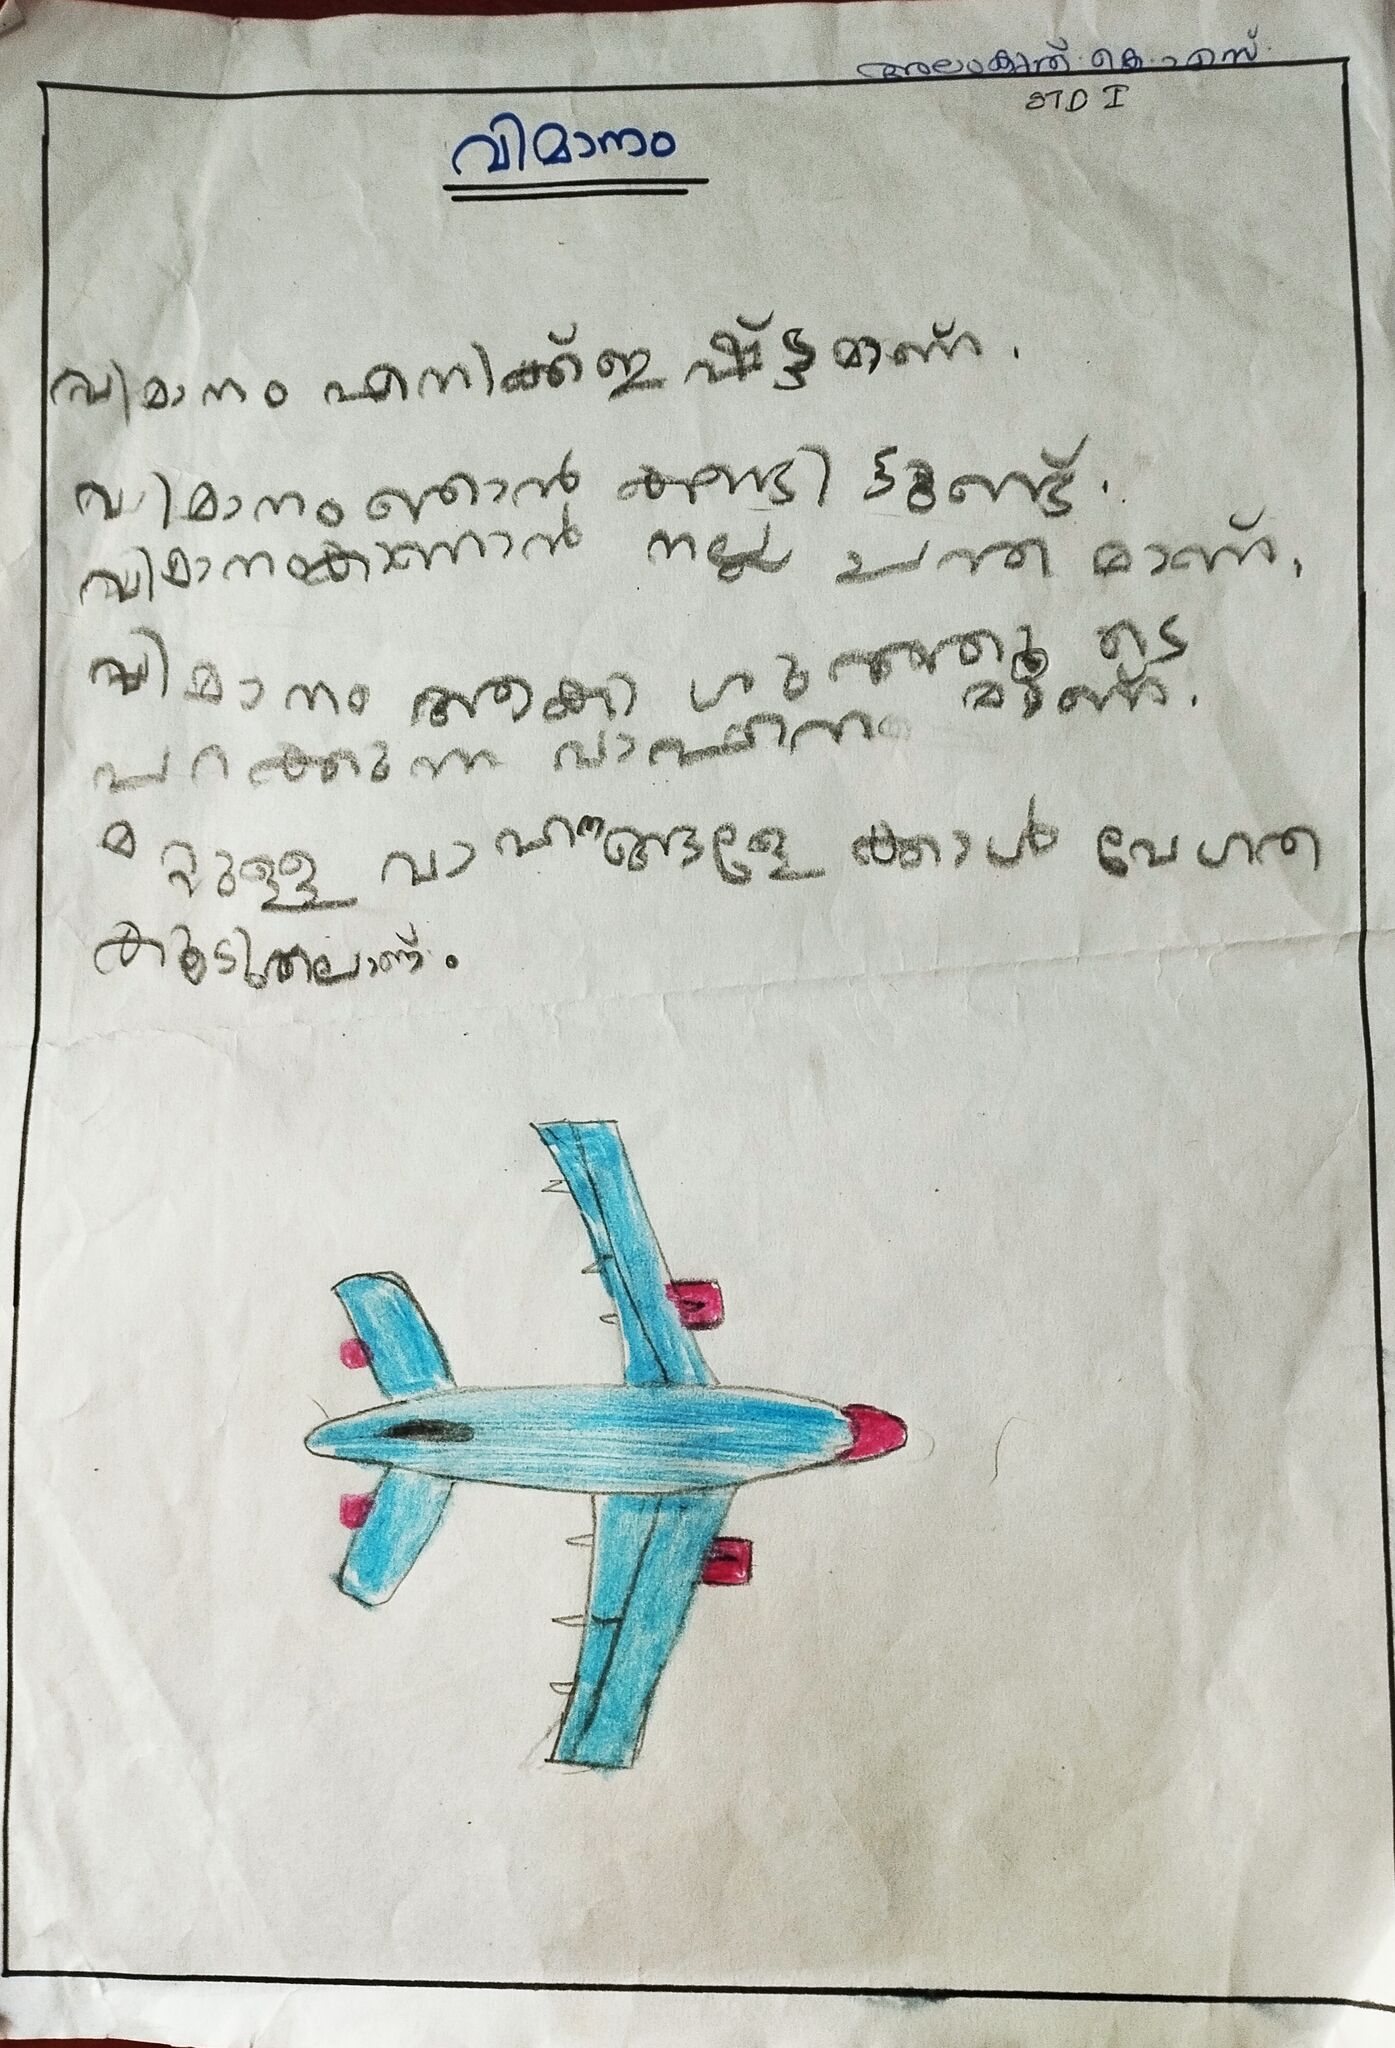 അലംകൃത്. കെ. എസ്.
STD I
വിമാനം
വിമാനം എനിക്ക് ഇഷ്ട്ടമാണ്.
വിമാനം ഞാൻ കണ്ടിട്ടുണ്ട്.
വിമാനം കാണാൻ നല്ല ചന്തമാണ്.
വിമാനം ആകാശത്തു കൂടെ
പറക്കുന്ന വാഹനമാണ്.
മറ്റുള്ള വാഹനങ്ങളേക്കാൾ വേഗത
കൂടുതലാണ്.